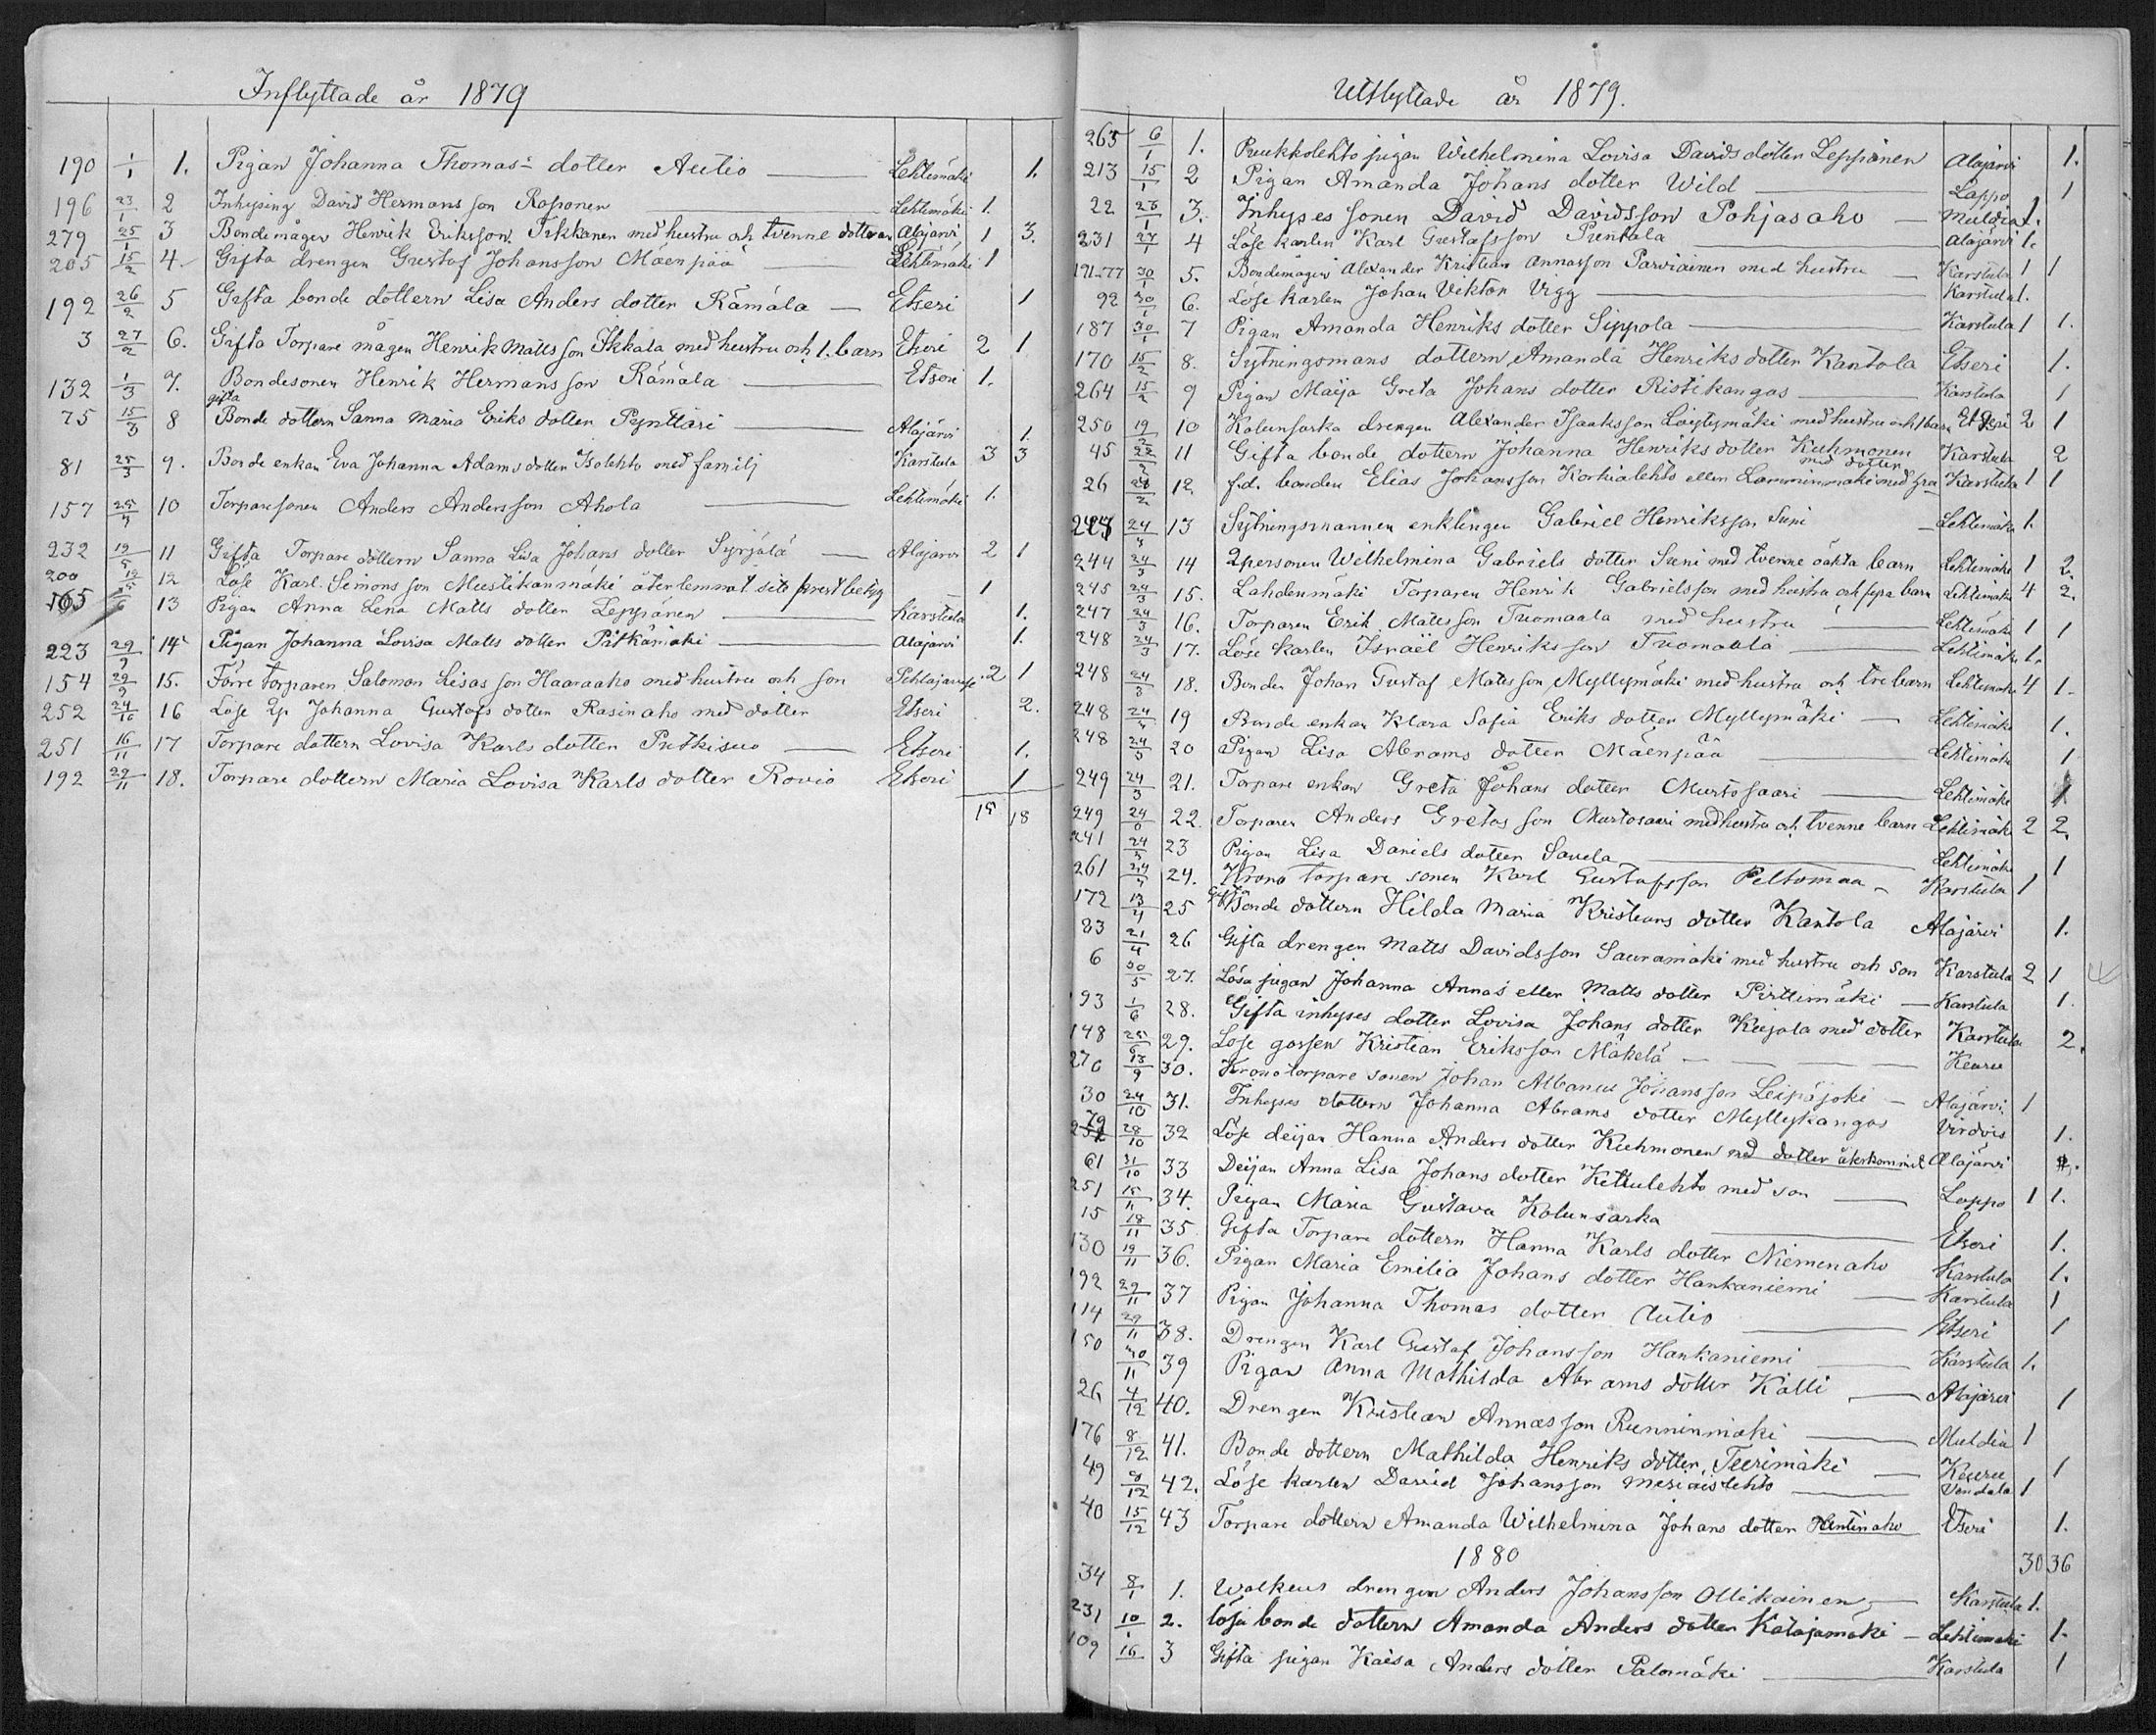 Inflyttade år 1879
190 1/1 1. Pigan Johanna Thomas dotter Autio Lehtimäki 1.
196 23/1 2 Inhysing David Hermansson Roponen Lehtimäki 1.
279 25/1 3 Bondemågen Henrik Eriksson med hustru och tvenne döttrar Alajärvi 1 3.
205 15/2 4. Gifta drengen Gustaf Johansson Mäenpää Lehtimäki 1
192 26/2 5 Gifta bonde dottern Lisa Anders dotter Rämälä Etseri 1
3 27/2 6. Gifta Torpare mågen Henrik Mattsson Ikkala med hustru och 1 barn Etseri 2 1
132 1/3 7. Bondesonen Henrik Hermansson Rämälä Etseri 1.
gifta
75 15/3 8 Bonde dottern Sanna Maria Eriks dotter Pynttäri Alajärvi 1.
81 25/3 9. Bonde enkan Eva Johanna Adams dotter Isolehto med familj Karstula 3 3
157 25/4 10 Torparesonen Anders Andersson Ahola Lehtimäki 1.
232 19/5 11 Gifta Torpare dottern Sanna Lisa Johans dotter Syrjälä Alajärvi 2 1
200 12 Löse Karl Simonsson Mustikanmäki återlemnat sitt prestbetyg 1
165 13 Pigan Anna Lena Matts dotter Leppänen Karstula 1.
223 29/9 14 Pigan Johanna Lovisa Matts dotter Pitkämäki Alajärvi 1.
154 29/9 15. Förre torparen Salomon Lisasson Haaraaho med hustru och son 2 1
252 24/10 16 Löse Johanna Gustafs dotter Rasinaho med dotter Etseri 2.
251 16/11 17 Torpare dottern Lovisa Karls dotter Putkisuo Etseri 1.
192 29/11 18. Torpare dottern Maria Lovisa Karls dotter Rovio Etseri 1
15 18
Utflyttade år 1879.
263 6/1 1. Puukkolehto pigan Wilhelmina Lovisa Davids dotter Leppänen Alajärvi 1.
213 15/1 2 Pigan Amanda Johans dotter Wild Lappo 1
22 25/1 3. Inhyses sonen David Davidsson Pohjasaho Muldia 1.
231 27/1 4 Löse karlen Karl Gustafsson Puntala Alajärvi 1.
191-77 30/1 5. Bondemågen Alexander Kristian Annasson Parviainen med hustru Karstula 1 1
92 30/1 6. Löse karlen Johan Viktor Vigg Karstula 1.
187 30/1 7 Pigan Amanda Henriks dotter Sippola Karstula 1 1.
170 15/2 8. Sytningsmans dottern Amanda Henriks dotter Kantola Etseri 1.
264 15/2 9 Pigan Maija Greta Johans dotter Ristikangas Karstula 1
250 19/2 10 Kolunsarka drengen Alexander Isaaksson Löytymäki med hustru och 1 barn Etseri 2 1
45 22/2 11 Gifta bonde dottern Johanna Henriks dotter Kuhmonen med dotter Karstula 2
26 28/2 12. f.d. bonden Elias Johansson Korkialehto eller Lamminmäki med fru Karstula 1 1
24/3 13 Sytningsmannen enklingen Gabriel Henriksson Suni Lehtimäki 1.
244 24/3 14 Qpersonen Wilhelmina Gabriels dotter Suni med tvenne oäkta barn Lehtimäki 1 2.
245 24/3 15. Lahdenmäki Torparen Henrik Gabrielsson med hustru och fyra barn Lehtimäki 4 2.
247 24/3 16. Torparen Erik Mattsson Tuomaala med hustru Lehtimäki 1 1
248 24/3 17. Löse karlen Israël Henriksson Tuomaala Lehtimäki 1.
248 24/3 18. Bonden Johan Gustaf Mattsson Myllymäki med hustru och tre barn Lehtimäki 4 1.
248 24/3 19 Bonde enkan Klara Sofia Eriks dotter Myllymäki Lehtimäki 1.
248 24/3 20 Pigan Lisa Abrams dotter Mäenpää Lehtimäki 1
249 24/3 21. Torpare enkan Greta Johans dotter Murtosaari Lehtimäki 1
249 24 22. Torparen Anders Gretasson Murtosaari med hustru och tvenne barn Lehtimäki 2 2.
241 24/3 23 Pigan Lisa Daniels dotter Savela Lehtimäki 1
261 24 24. Krono torpare sonen Karl Gustafsson Peltomaa Karstula 1
172 13/4 25 Gifta Bonde dottern Hilda Maria Kristians dotter Kantola Alajärvi 1.
83 21/4 26 Gifta drengen Matts Davidsson Sauramäki med hustru och son Karstula 2 1
6 30/5 27. Lösa pigan Johanna Annas eller Matts dotter Pirttimäki Karstula 1.
193 1/6 28. Gifta inhyses dotter Lovisa Johans dotter Kujala med dotter Karstula 2.
148 25/6 29. Löse gossen Kristian Eriksson Mäkelä Keuru
276 13/9 30. Kronotorpare sonen Johan Albanus Johansson Leipäjoki Alajärvi 1
30 24/10 31. Inhyses dottern Johanna Abrams dotter Myllykangas Virdois 1.
79 28/10 32 Löse deijan Hanna Anders dotter Kuhmonen med dotter återkommit Alajärvi
61 31/10 33 Deijan Anna Lisa Johans dotter Kettulehto med son Lappo 1 1.
251 15/11 34. Pigan Maria Gustava Kolunsarka Etseri 1.
15 18/11 35 Gifta Torpare dottern Hanna Karls dotter Niemenaho Karstula 1.
130 19/11 36. Pigan Maria Emilia Johans dotter Hankaniemi Karstula 1
192 29/11 37 Pigan Johanna Thomas dotter Autio Etseri 1
114 29/11 38. Drengen Karl Gustaf Johansson Hankaniemi Karstula 1.
150 30/11 39 Pigan Anna Mathilda Abrams dotter Källi Alajärvi 1
26 4/12 40. Drengen Kristian Annasson Runninmäki Muldia 1
176 8/12 41. Bonde dottern Mathilda Henriks dotter Teerimäki Keuru 1
49 8/12 42. Löse karlen David Johansson 1
40 15/12 43 Torpare dottern Amanda Wilhelmina Johans dotter Etseri 1.
30 36
1880
34 8/1 1. drengen Anders Johansson Ollikainen Karstula 1.
231 10/1 2. lösa bonde dottern Amanda Anders dotter Katajamäki Lehtimäki 1.
109 16 3 Gifta pigan Kaisa Anders dotter Palomäki Karstula 1